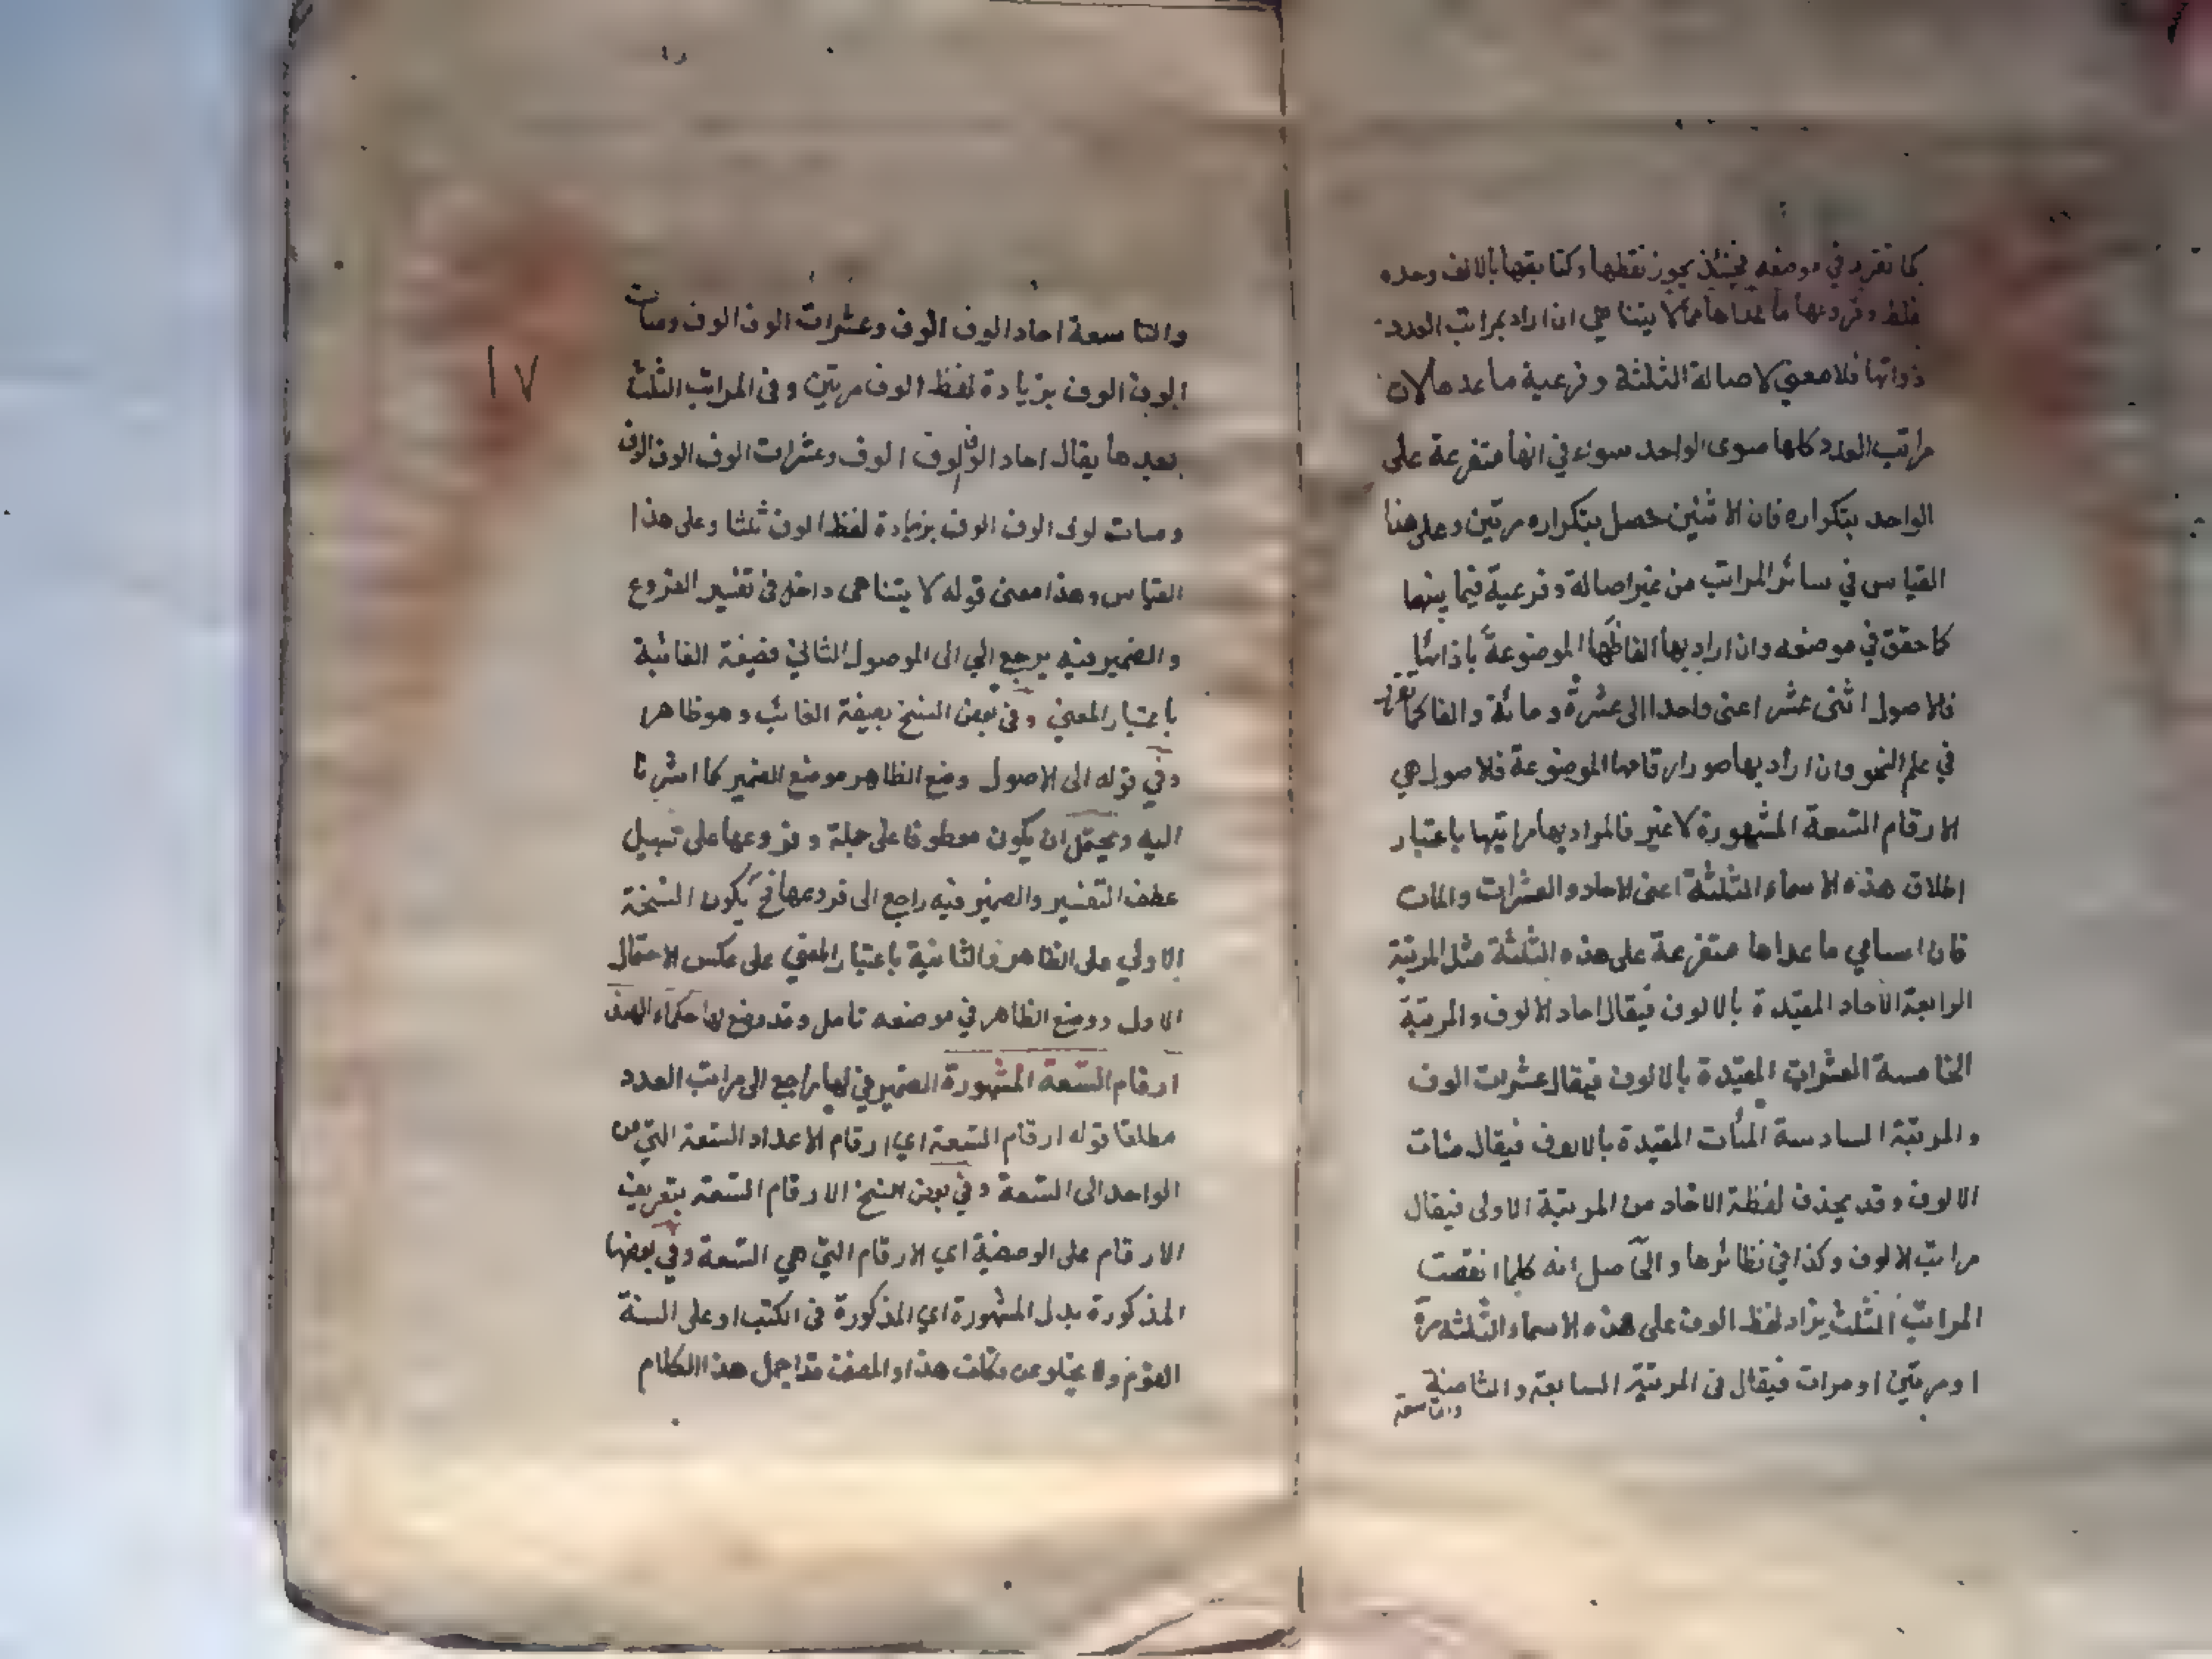 كما تقرر في موضعه فحينئذ يجوز نقطها وكتابتها بالالف وحده
فلفظ وفروعها ما عداها مما لا يتناهى ان اراد بمراتب العدد
ذواتها فلا معنى لاصالة الثلثة وفرعية ما عدها لان
مراتب العدد كلها سوى الواحد سواء في انها متفرعة على
الواحد بتكراره فان الاثنين حصل بتكراره مرتين وعلى هذا
القياس في سائر المراتب من غير اصالة وفرعية فيما بينها
كما حقق في موضعه وان اراد بها الفاظها الموضوعة باذائها
فالاصول اثنى عشر اعنى واحدا الى عشرة ومائة والفا كما تقرر
في علم النحو وان اراد بها صور ارقامها الموضوعة فلاصول هي
الارقام التسعة المشهورة لا غير فالمراد بها مراتبها باعتبار
اطلاق هذه الاسماء الثلثة اعنى الاحاد والعشرات والمات
فان اسامي ما عداها متفرعة على هذه الثلثة مثل المرتبة
الرابعة الآحاد المقيدة بالالوف فيقال احاد الالوف والمرتبة
الخامسة العشرات المقيدة بالالوف فيقال عشرات الوف
والمرتبة السادسة المأت المقيدة بالالوف فيقال مئات
الالوف وقد يحذف لفظة الاحاد من المرتبة الاولى فيقال
مراتب الالوف وكذا في نظائرها والحاصل انه كلما انقضت
المراتب الثلث يزاد لفظ الوف على هذه الاسماء الثلثة مرة
او مرتين او مرات فيقال في المرتبة السابعة والثامنة
والتاسعة
١٧
والتاسعة احاد الوف الوف وعشرات الوف الوف ومات
الوف الوف بزيادة لفظ الوف مرتين وفى المراتب الثلث
بعدها يقال احاد الوف الوف الوف وعشرات الوف الوف الوف
ومات لوف الوف الوف بزيادة لفظ الوف ثلثا وعلى هذا
القياس وهذا معنى قوله لا يتناهى داخل فى تفسير الفروع
والضمير فيه يرجع الي الى الموصول الثاني فصيغة الغائبة
باعتبار المعنى وفى بعض النسخ بصيغة الغائب وهو ظاهر
وفي قوله الى الاصول وضع الظاهر موضع الضمير كما اشرنا
اليه ويحتمل ان يكون معطوفا على جملة وفروعها على سبيل
عطف التفسير والضمير فيه راجع الى فروعها فح يكون النسخة
الاولي على الظاهر والثانية باعتبار المعني على عكس الاحتمال
الاول ووضع الظاهر في موضعه تامل وقد وضع لها حكماء الهند
ارقام التسعة المشهورة الضمير في لها راجع الى مراتب العدد
مطلقا قوله ارقام التسعة اي ارقام الاعداد التسعة التي من
الواحد الى التسعة وفي بعض النسخ الارقام التسعة بتعريف
الارقام على الوصفية اي الارقام التي هي التسعة وفي بعضها
المذكورة بدل المشهورة اي المذكورة فى الكتب او على السنة
القوم ولا يخلو عن تكلف هذا والمصنف قد اجمل هذا الكلام